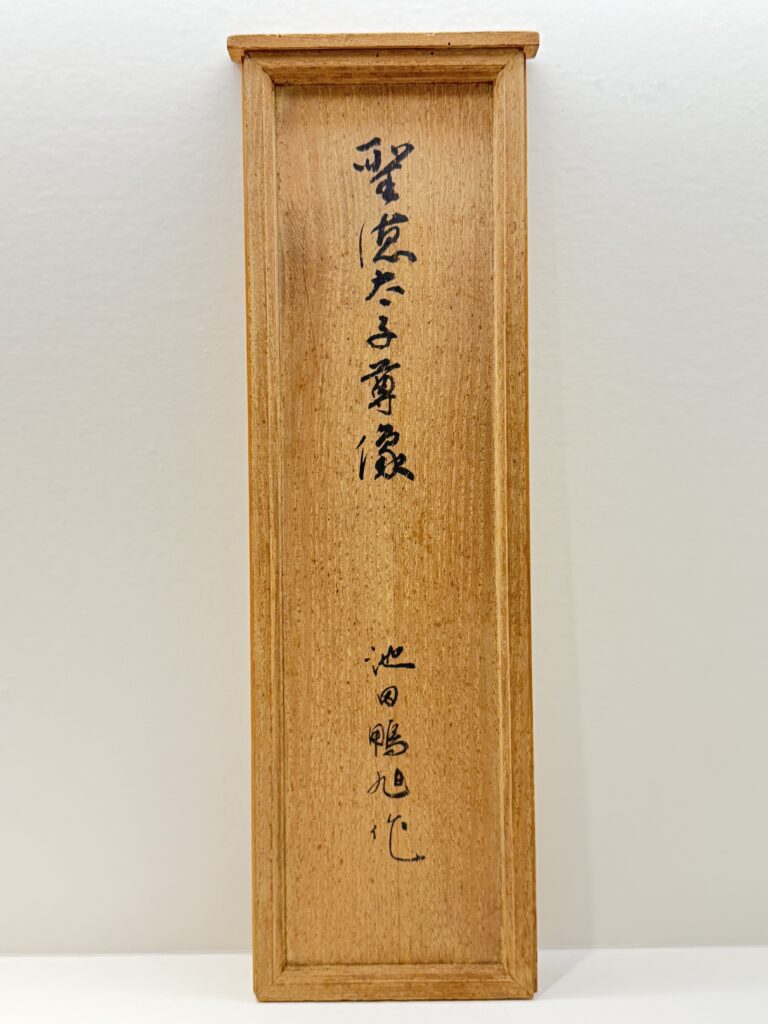 聖徳太子尊像
池田鴨旭作